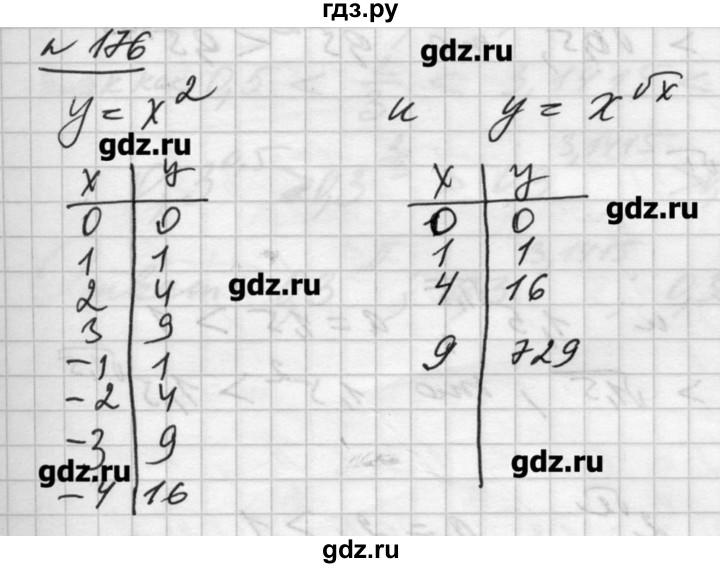 гдз.ру
№ 176
gdz.ru
y = x²
и y = x^√x
gdz.ru
x y
0 0
1 1
2 4
3 9
-1 1
-2 4
-3 9
-4 16
x y
0 0
1 1
4 16
9 729
gdz.ru
gdz.ru
gdz.ru
gdz.ru
gdz.ru